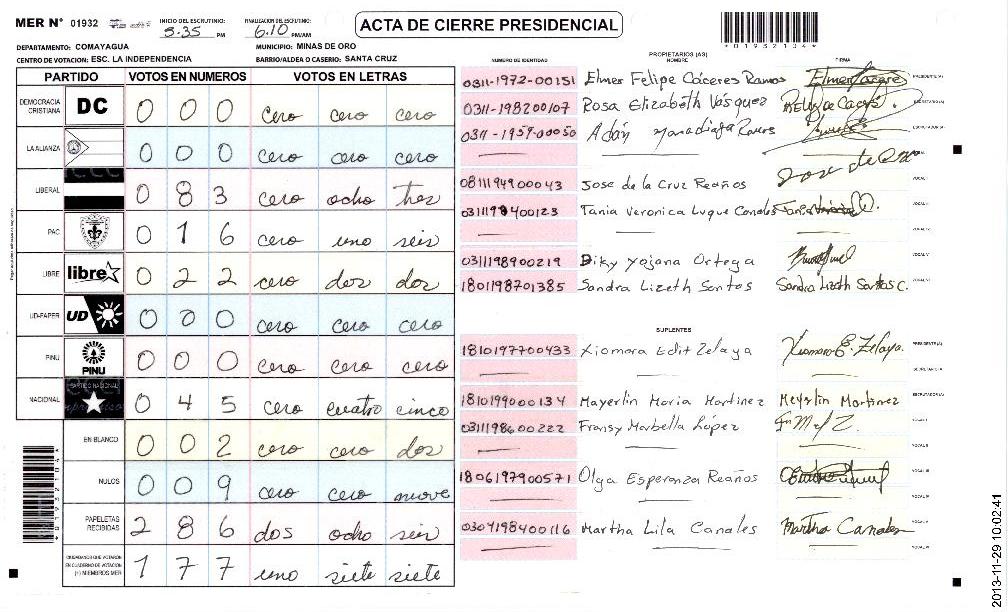 MER N° 01932 INICIO DEL ESCRUTINIO: 5-35 PM FINALIZACION DEL ESCRUTINIO: 6.10 PM/AM
ACTA DE CIERRE PRESIDENCIAL
*01932104*
DEPARTAMENTO: COMAYAGUA MUNICIPIO: MINAS DE ORO
CENTRO DE VOTACION: ESC. LA INDEPENDENCIA BARRIO/ALDEA O CASERIO: SANTA CRUZ
PARTIDO VOTOS EN NUMEROS VOTOS EN LETRAS
DEMOCRACIA CRISTIANA DC 0 0 0 cero cero cero
LA ALIANZA 0 0 0 cero cero cero
LIBERAL 0 8 3 cero ocho tres
PAC 0 1 6 cero uno seis
LIBRE libre 0 2 2 cero dos dos
UD-FAPER UD 0 0 0 cero cero cero
PINU PINU 0 0 0 cero cero cero
NACIONAL PARTIDO NACIONAL 0 4 5 cero cuatro cinco
EN BLANCO 0 0 2 cero cero dos
NULOS 0 0 9 cero cero nueve
PAPELETAS RECIBIDAS 2 8 6 dos ocho seis
CIUDADANOS QUE VOTARON EN CUADERNO DE VOTACION (+) MIEMBROS MER 1 7 7 uno siete siete
PROPIETARIOS (AS)
NUMERO DE IDENTIDAD NOMBRE FIRMA
0311-1972-00151 Elmer Felipe Cáceres Ramos PRESIDENTE(A)
0311-198200107 Rosa Elizabeth Vásquez SECRETARIO(A)
0311-1959-00050 Adán ESCRUTADOR(A)
0811194900043 Jose de la Cruz Reaños Jose de la Cruz
0311199400123 Tania Veronica Luque Canales
0311198900219 Diky Yojana Ortega
1801198701385 Sandra Lizeth Santos Sandra Lizeth Santos C.
SUPLENTES
1810197700433 Xiomara Edit Zelaya Xiomara E. Zelaya. PRESIDENTE(A)
SECRETARIO/A
1810199000134 Mayerlin Maria Martinez Meyrlin Martinez ESCRUTADOR(A)
0311198600222 Fransy Marbella López
1806197900571 Olga Esperanza Reaños
0304198400116 Martha Lila Canales Martha Canales
2013-11-29 10:02:41